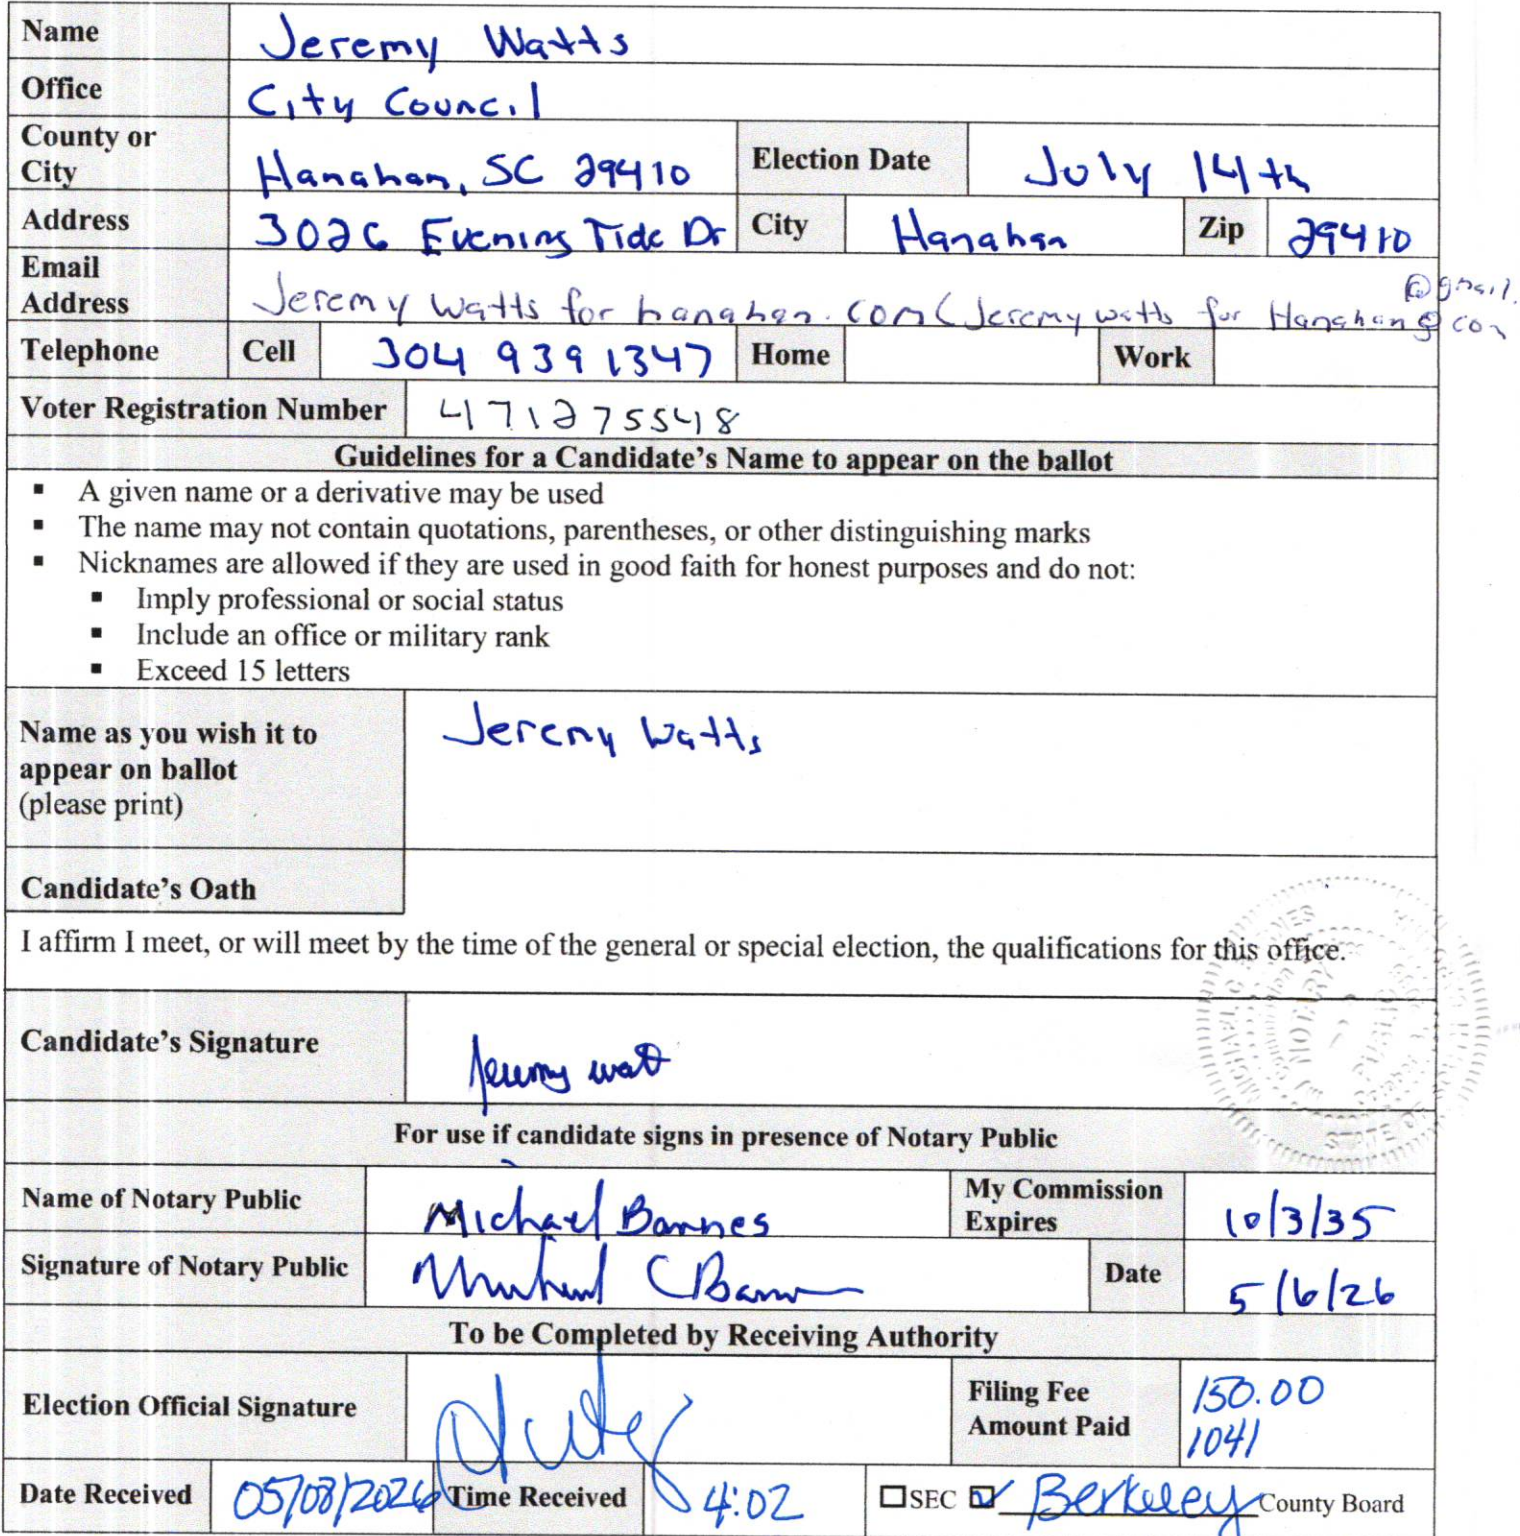 Name Jeremy Watts
Office City Council
County or City Hanahan, SC 29410 Election Date July 14th
Address 3026 Evening Tide Dr City Hanahan Zip 29410
@gmail.
Email Address Jeremy Watts for hanahan.com (Jeremy watts for Hanahan@ com
Telephone Cell 304 939 1347 Home Work
Voter Registration Number 471275548
Guidelines for a Candidate's Name to appear on the ballot
▪ A given name or a derivative may be used
▪ The name may not contain quotations, parentheses, or other distinguishing marks
▪ Nicknames are allowed if they are used in good faith for honest purposes and do not:
▪ Imply professional or social status
▪ Include an office or military rank
▪ Exceed 15 letters
Name as you wish it to
appear on ballot
(please print)
Jeremy Watts
Candidate's Oath
I affirm I meet, or will meet by the time of the general or special election, the qualifications for this office.
Candidate's Signature Jeremy Watt
For use if candidate signs in presence of Notary Public
Name of Notary Public Michael Barnes My Commission Expires 10/3/35
Signature of Notary Public Michael C Barn Date 5/6/26
To be Completed by Receiving Authority
Election Official Signature Filing Fee Amount Paid 150.00
1041
Date Received 05/08/2026 Time Received 4:02 ☐SEC ☑ Berkeley County Board
NOTARY
STATE OF